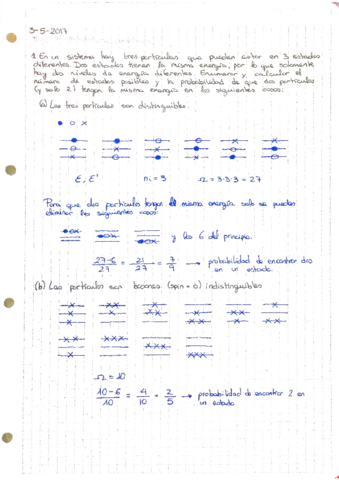 3-5-2017
1. En un sistema hay tres partículas que pueden estar en 3 estados
diferentes. Dos estados tienen la misma energía, por lo que solamente
hay dos niveles de energía diferentes. Enumerar y calcular el
número de estados posibles y la probabilidad de que dos partículas
(y solo 2) tengan la misma energía en los siguientes casos:
(a) Las tres partículas son distinguibles.
● o x
ε, ε'  nᵢ = 3  Ω = 3·3·3 = 27
Para que dos partículas tengan la misma energía solo se pueden
eliminar los siguientes casos:
y los 6 del principio.
27-6/27 = 21/27 = 7/9 → probabilidad de encontrar dos
en un estado.
(b) Las partículas son bosones (spin = 0) indistinguibles
Ω = 10
10-6/10 = 4/10 = 2/5 → probabilidad de encontrar 2 en
un estado